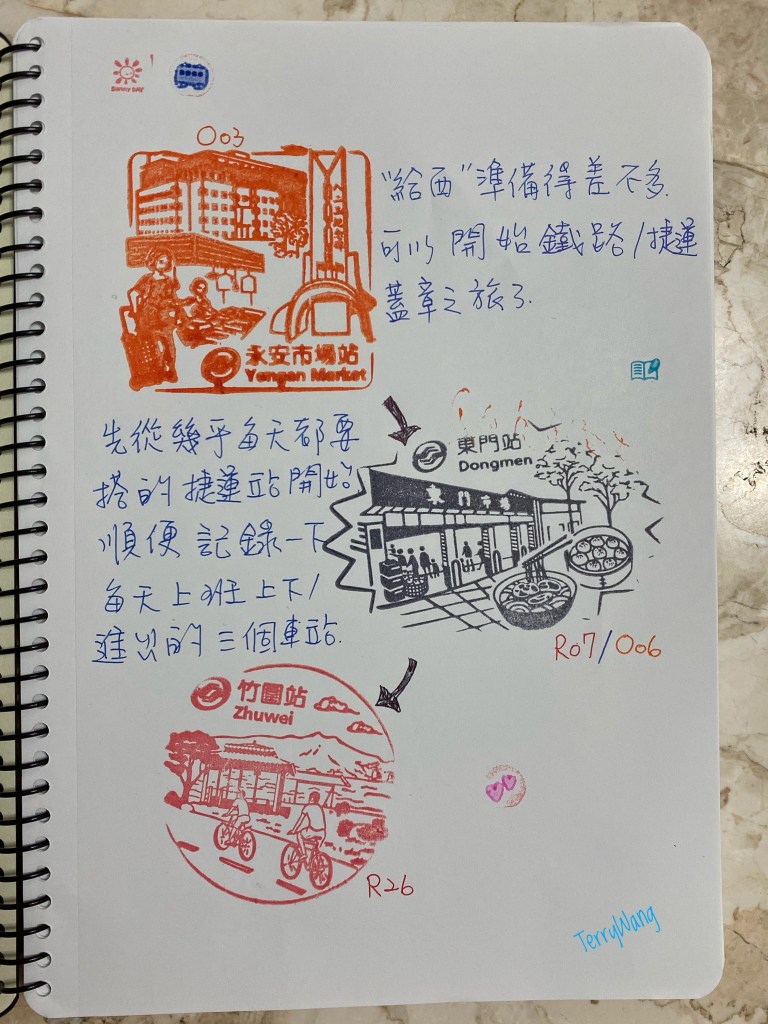 Sunny day
O03
永安市場站
Yongan Market
"給西"準備得差不多.
可以開始鐵路/捷運
蓋章之旅了.
先從幾乎每天都要
搭的捷運站開始
順便記錄一下
每天上班上下/
進出的三個車站.
東門站
Dongmen
東門市場
R07/O06
竹圍站
Zhuwei
R26
TerryWang